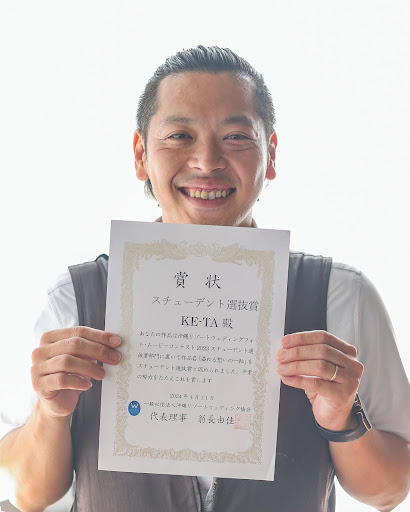 賞状
スチューデント選抜賞
KE-TA 殿
あなたの作品は沖縄リゾートウェディングフォ
ト・ムービーコンテスト2023 スチューデント選
抜賞部門に於いて作品名「染める想いの一粒」を
スチューデント選抜賞と認められました
の努力をたたえこれを賞します
2024年4月11日
一般社団法人沖縄リゾートウェディング協会
代表理事 翁長由佳
W